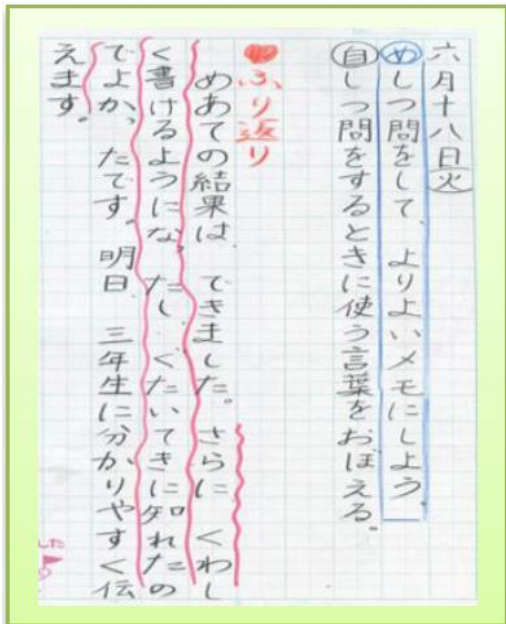 六月十八日㊋
めしつ問をして、よりよいメモにしよう。
自しつ問をするときに使う言葉をおぼえる。
ふり返り
めあての結果は、できました。さらに、くわし
く書けるようになったし、ぐたいてきに知れたの
でよかったです。明日、三年生に分かりやすく伝
えます。